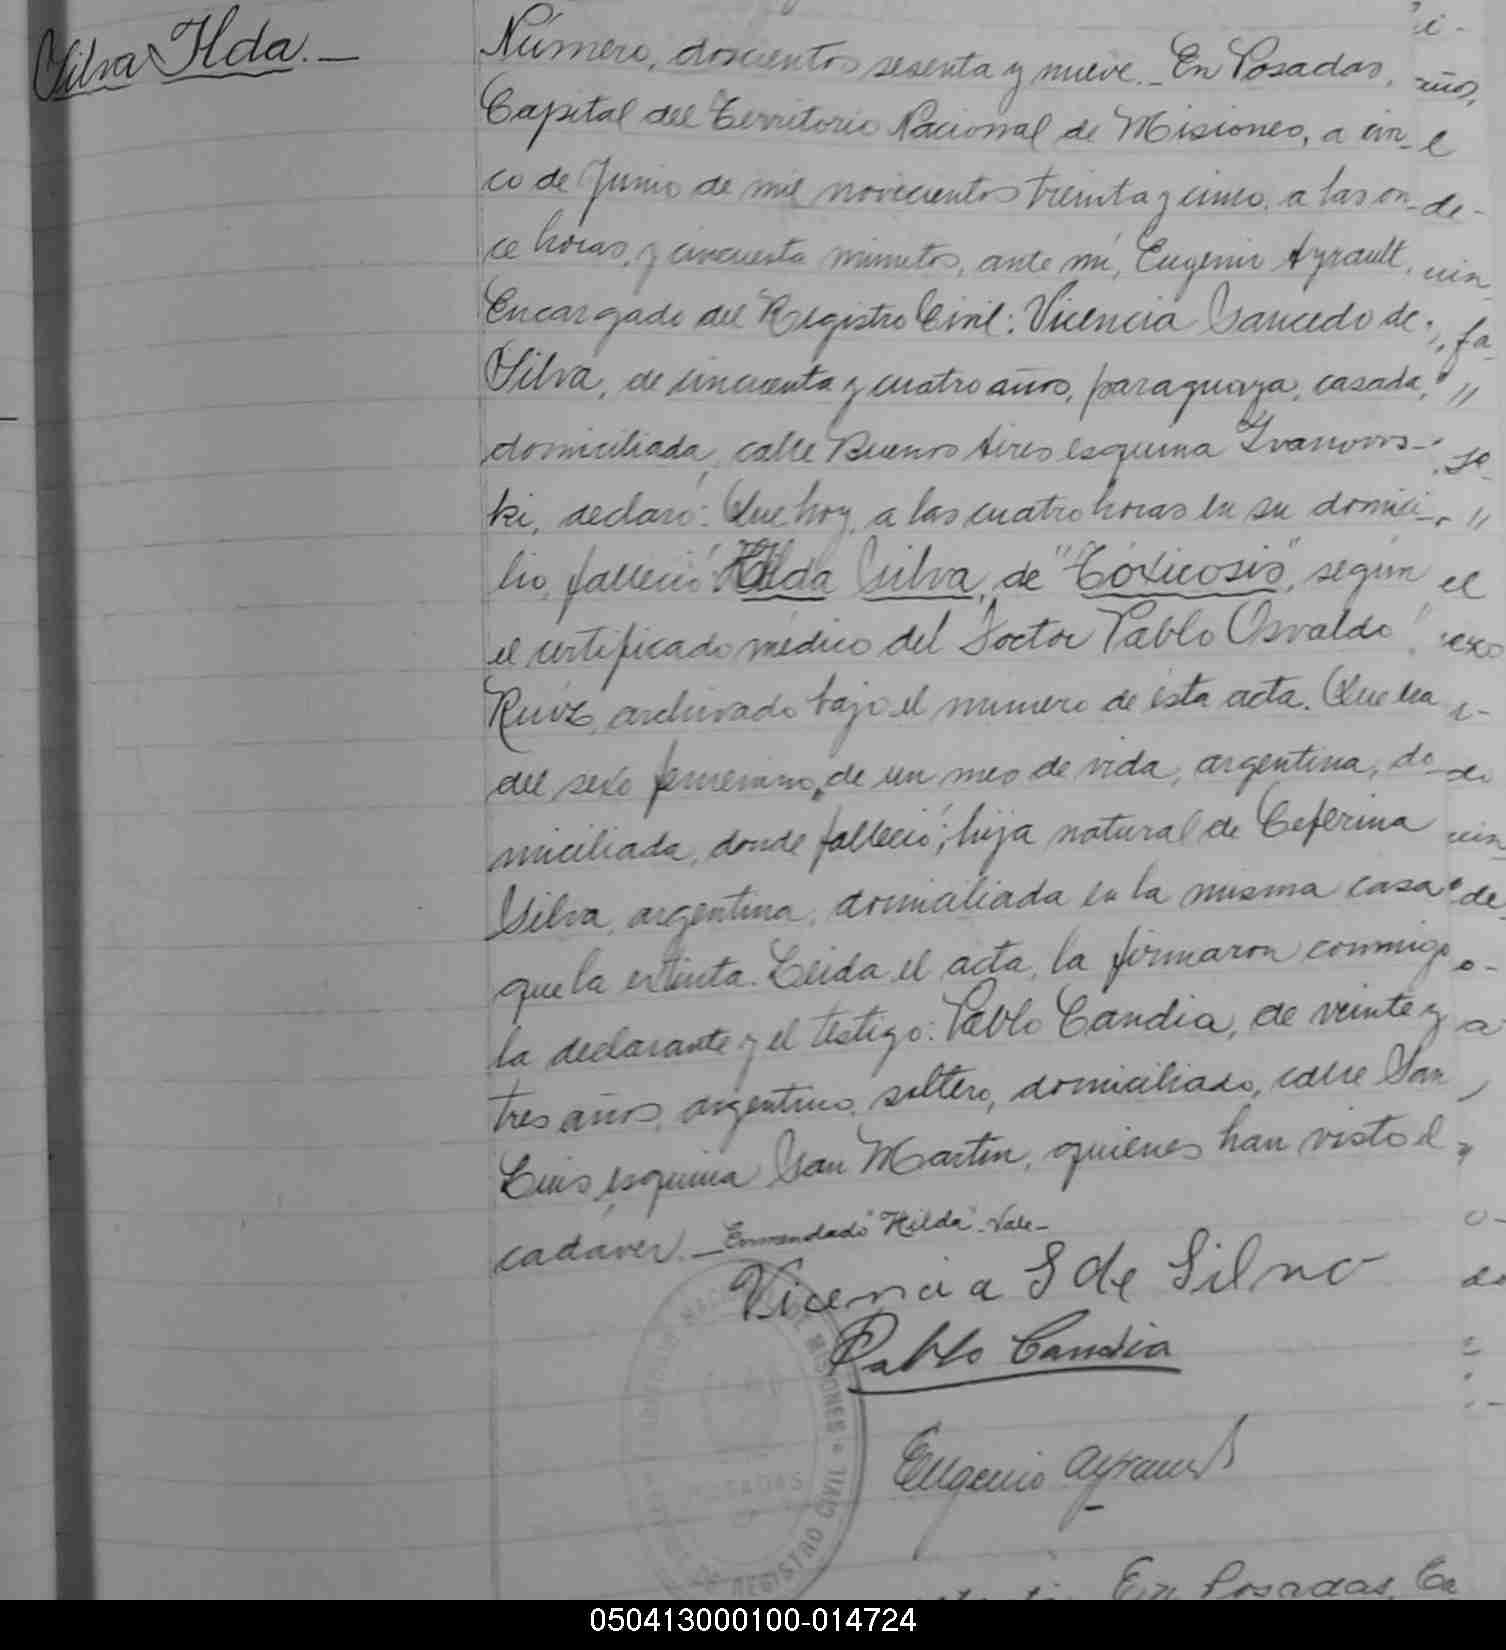 Silva Ilda.—
Número, doscientos sesenta y nueve.- En Posadas,
Capital del Territorio Nacional de Misiones, a cin-
co de Junio de mil novecientos treinta y cinco, a las on-
ce horas, y cincuenta minutos, ante mi, Eugenio Ayrault,
Encargado del Registro Civil: Vicencia Saucedo de
Silva, de cincuenta y cuatro años, paraguaya, casada,
domiciliada, calle Buenos Aires esquina Ivanows-
ki, declaró: Que hoy, a las cuatro horas en su domici-
lio, falleció Hilda Silva, de "Tóxicosis", según
el certificado médico del Doctor Pablo Osvaldo
Ruíz, archivado bajo el número de ésta acta. Que era
del sexo femenino, de un mes de vida, argentina, do-
miciliada, donde falleció; hija natural de Ceferina
Silva, argentina, domiciliada en la misma casa
que la extinta. Leida el acta, la firmaron conmigo
la declarante y el testigo: Pablo Candia, de veinte y
tres años, argentino, soltero, domiciliado, calle San
Luis esquina San Martín, quienes han visto el
cadáver.—Enmendado "Hilda" Vale—
Vicencia S de Silva
Pablo Candia
Eugenio Ayrault
MISIONES
POSADAS
REGISTRO CIVIL
En Posadas, Ca
050413000100-014724